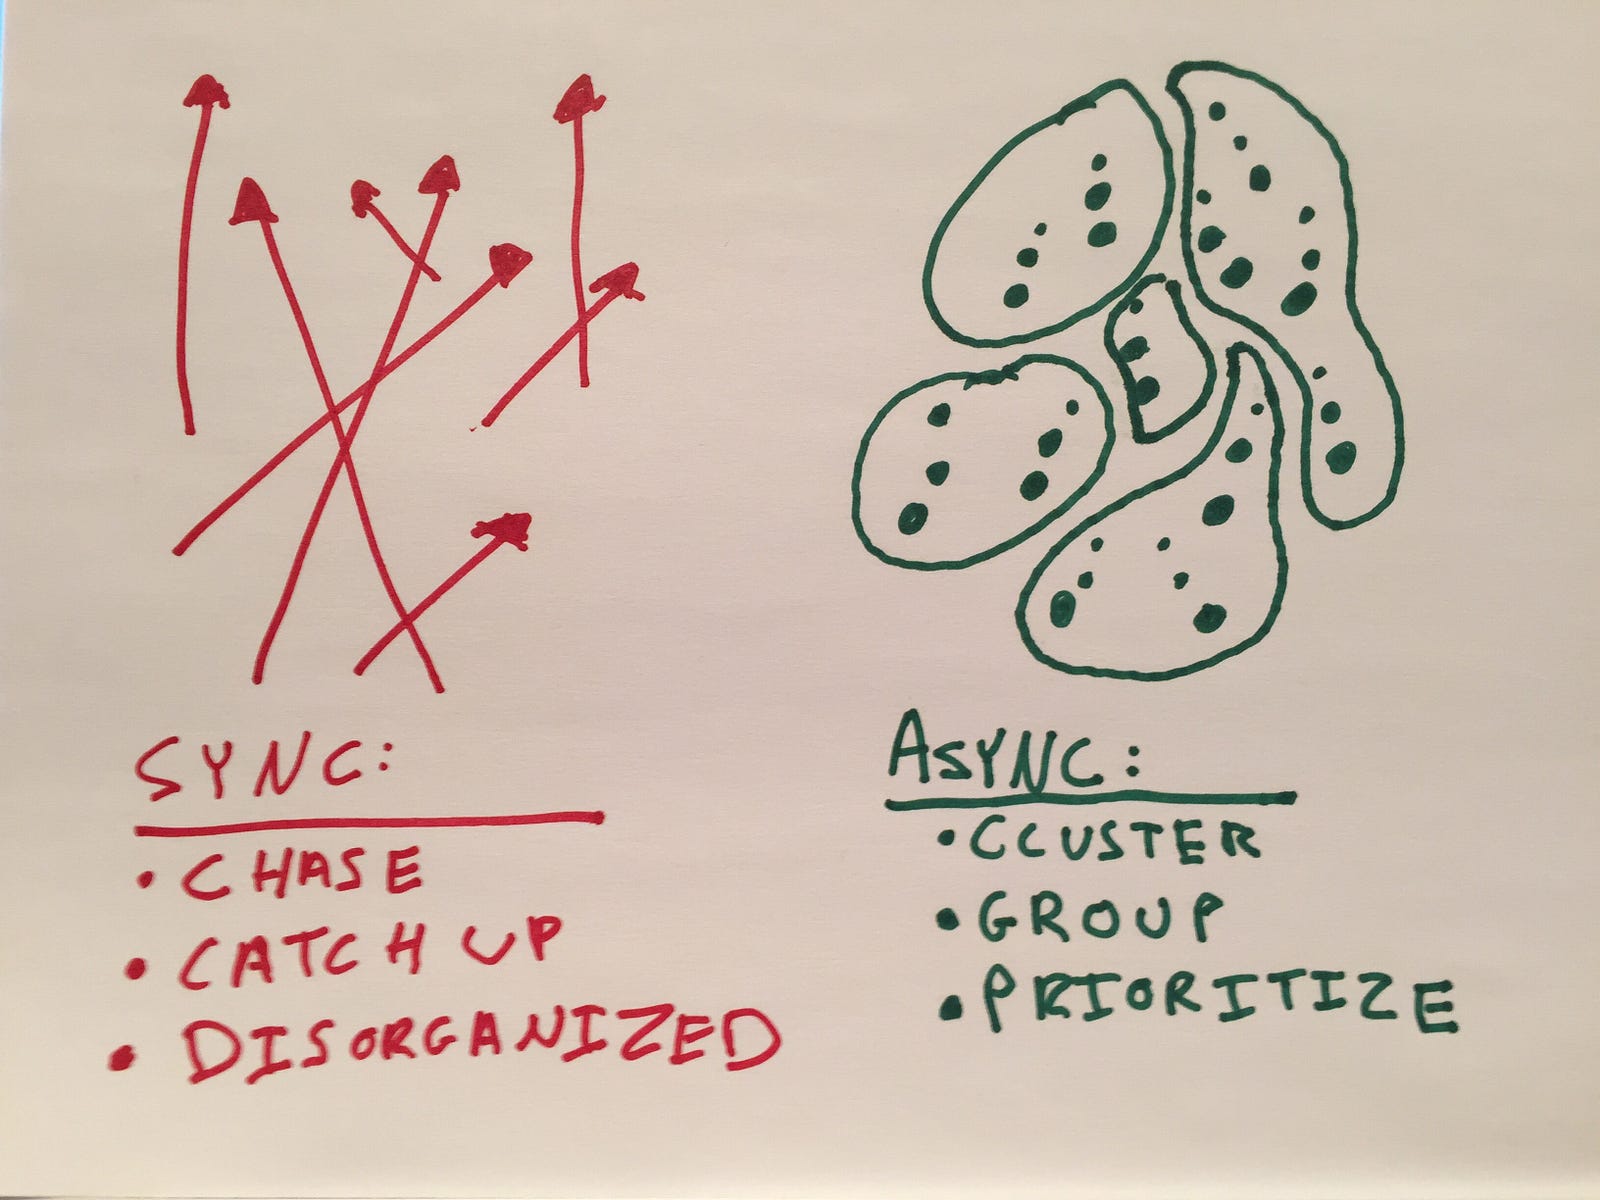 SYNC:
• CHASE
• CATCH UP
• DISORGANIZED
ASYNC:
• CLUSTER
• GROUP
• PRIORITIZE